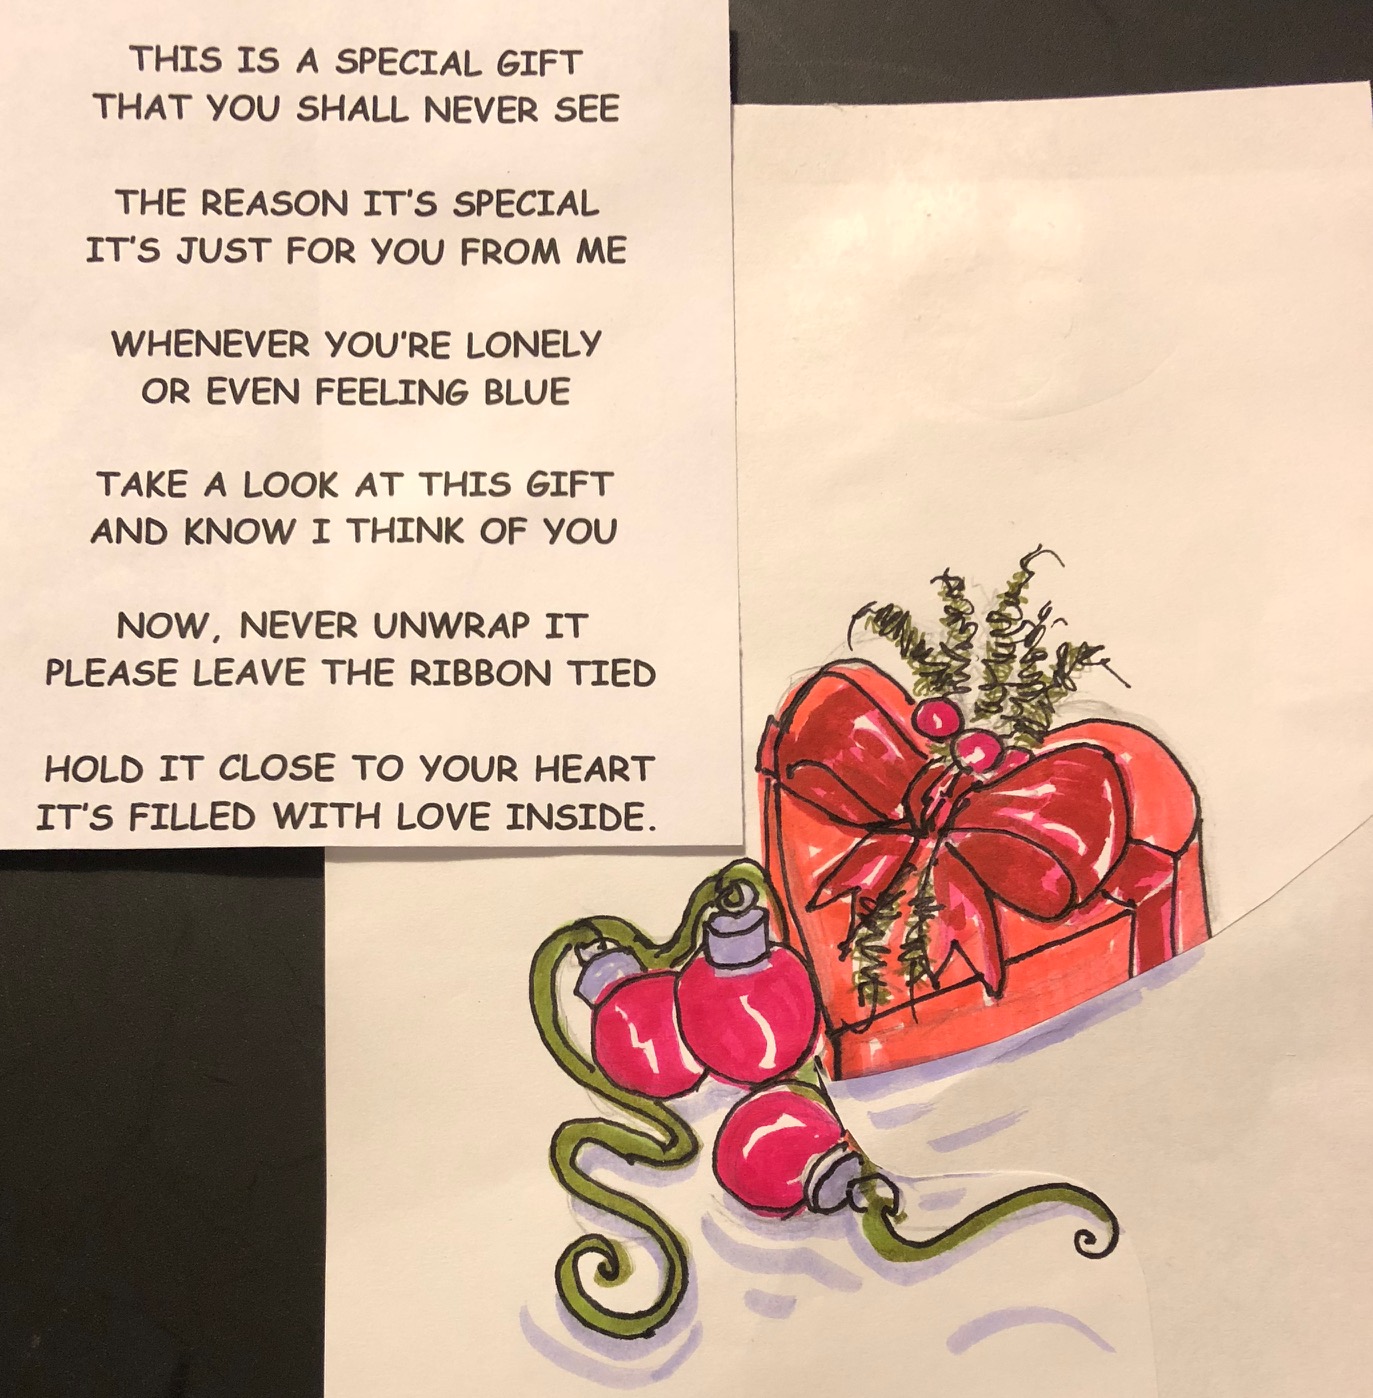 THIS IS A SPECIAL GIFT
THAT YOU SHALL NEVER SEE
THE REASON IT'S SPECIAL
IT'S JUST FOR YOU FROM ME
WHENEVER YOU'RE LONELY
OR EVEN FEELING BLUE
TAKE A LOOK AT THIS GIFT
AND KNOW I THINK OF YOU
NOW, NEVER UNWRAP IT
PLEASE LEAVE THE RIBBON TIED
HOLD IT CLOSE TO YOUR HEART
IT'S FILLED WITH LOVE INSIDE.